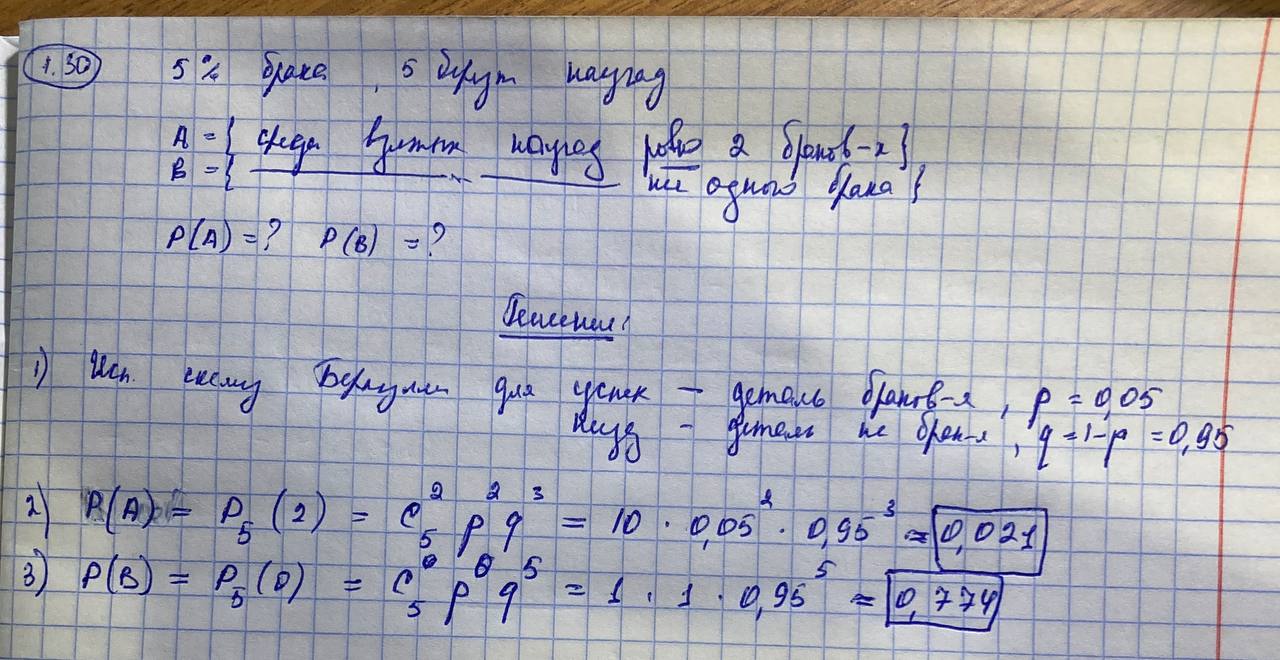 1.30 5% брака, 5 берут наугад
A = { среди взятых наугад ровно 2 браков-х }
B = { —————— " —————— ни одного брака }
P(A) = ? P(B) = ?
Решение:
1) Исп. схему Бернулли для успех – деталь браков-я, p = 0,05
неуд – деталь не брак-я, q = 1-p = 0,95
2) P(A) = P₅(2) = C₅² p² q³ = 10 · 0,05² · 0,95³ ≈ 0,021
3) P(B) = P₅(0) = C₅⁰ p⁰ q⁵ = 1 · 1 · 0,95⁵ ≈ 0,774